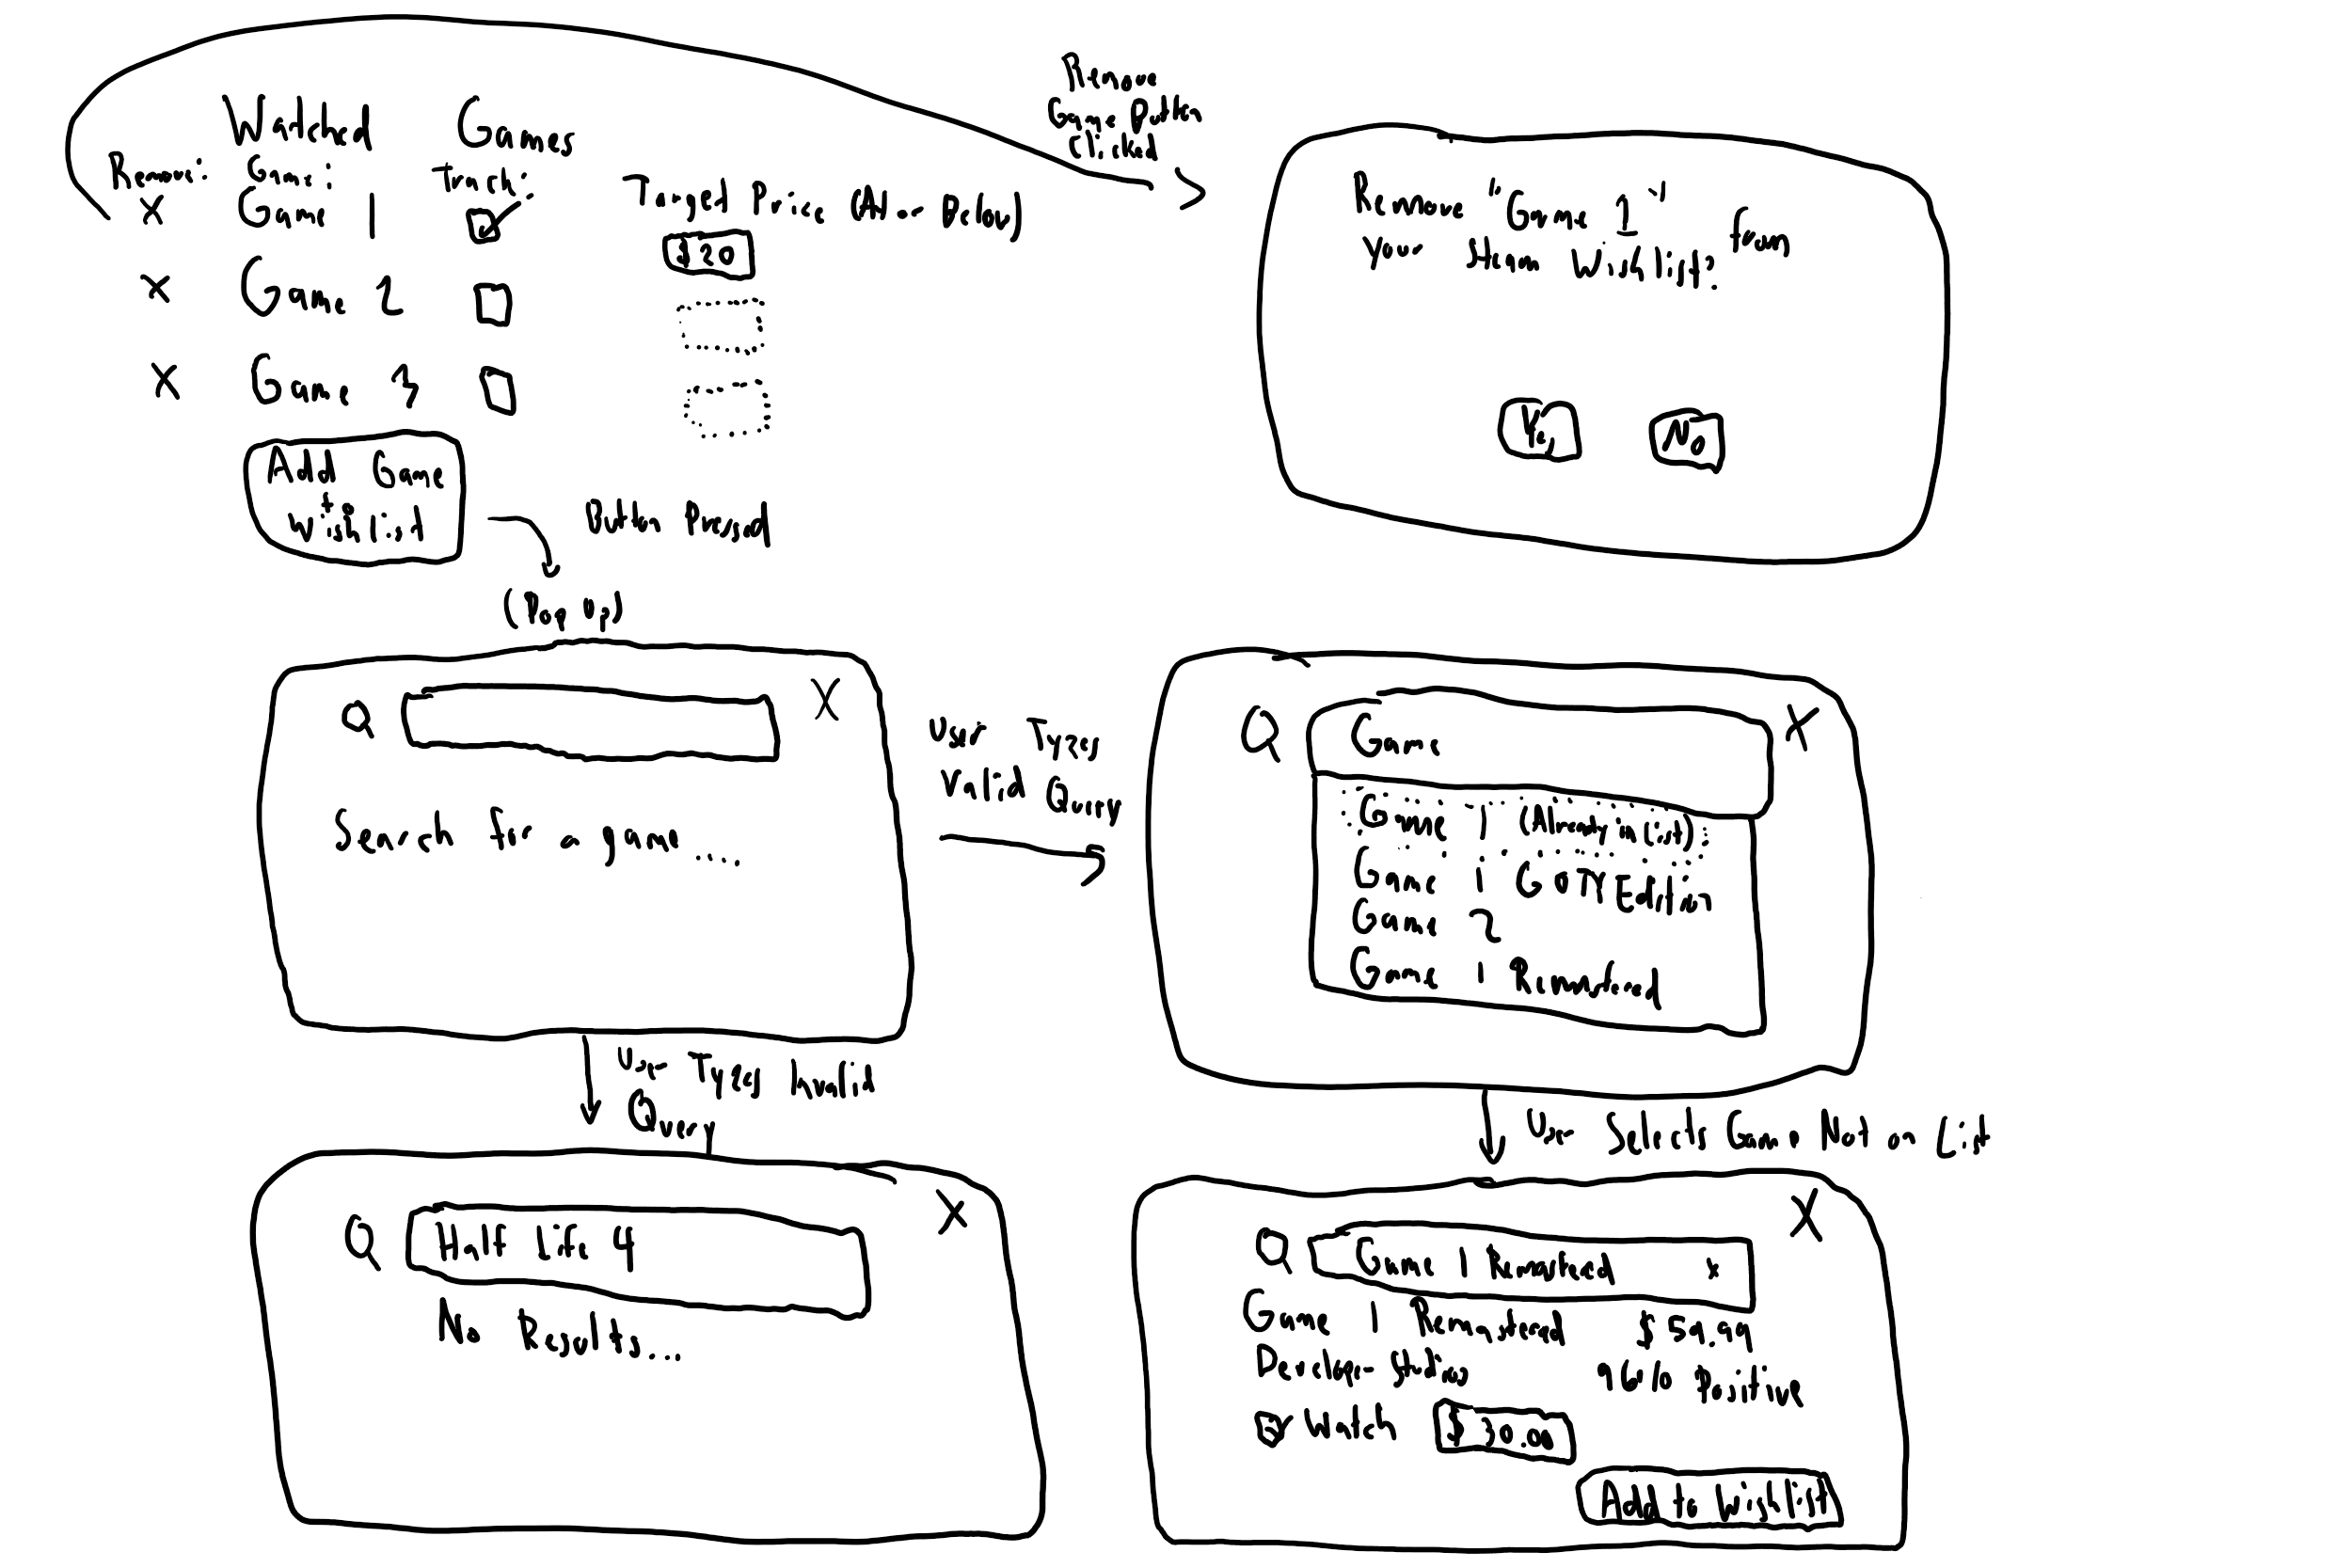 Watched Games
Remove: Game: Track: Target Price (At or Below)
X Game 1 $20
X Game 2
X Game 3
Add Game
to
Wishlist
Button Pressed
(Pop Up)
Remove
Game Button
Clicked
Remove "Game 1" from
your Steam Wishlist?
Yes No
Q X
Search for a game....
User Types
Valid Query
Q Game X
Game 1 (Already in List)
Game 1 GOTY Edition
Game 2
Game 1 Remastered
User Types Invalid
Query
Q Half Life 4 X
No Results...
User Selects Game Not on List
Q Game 1 Remastered x X
Game 1 Remastered $59.99
Developer Studios 96% Positive
Watch $30.00
Add to Wishlist